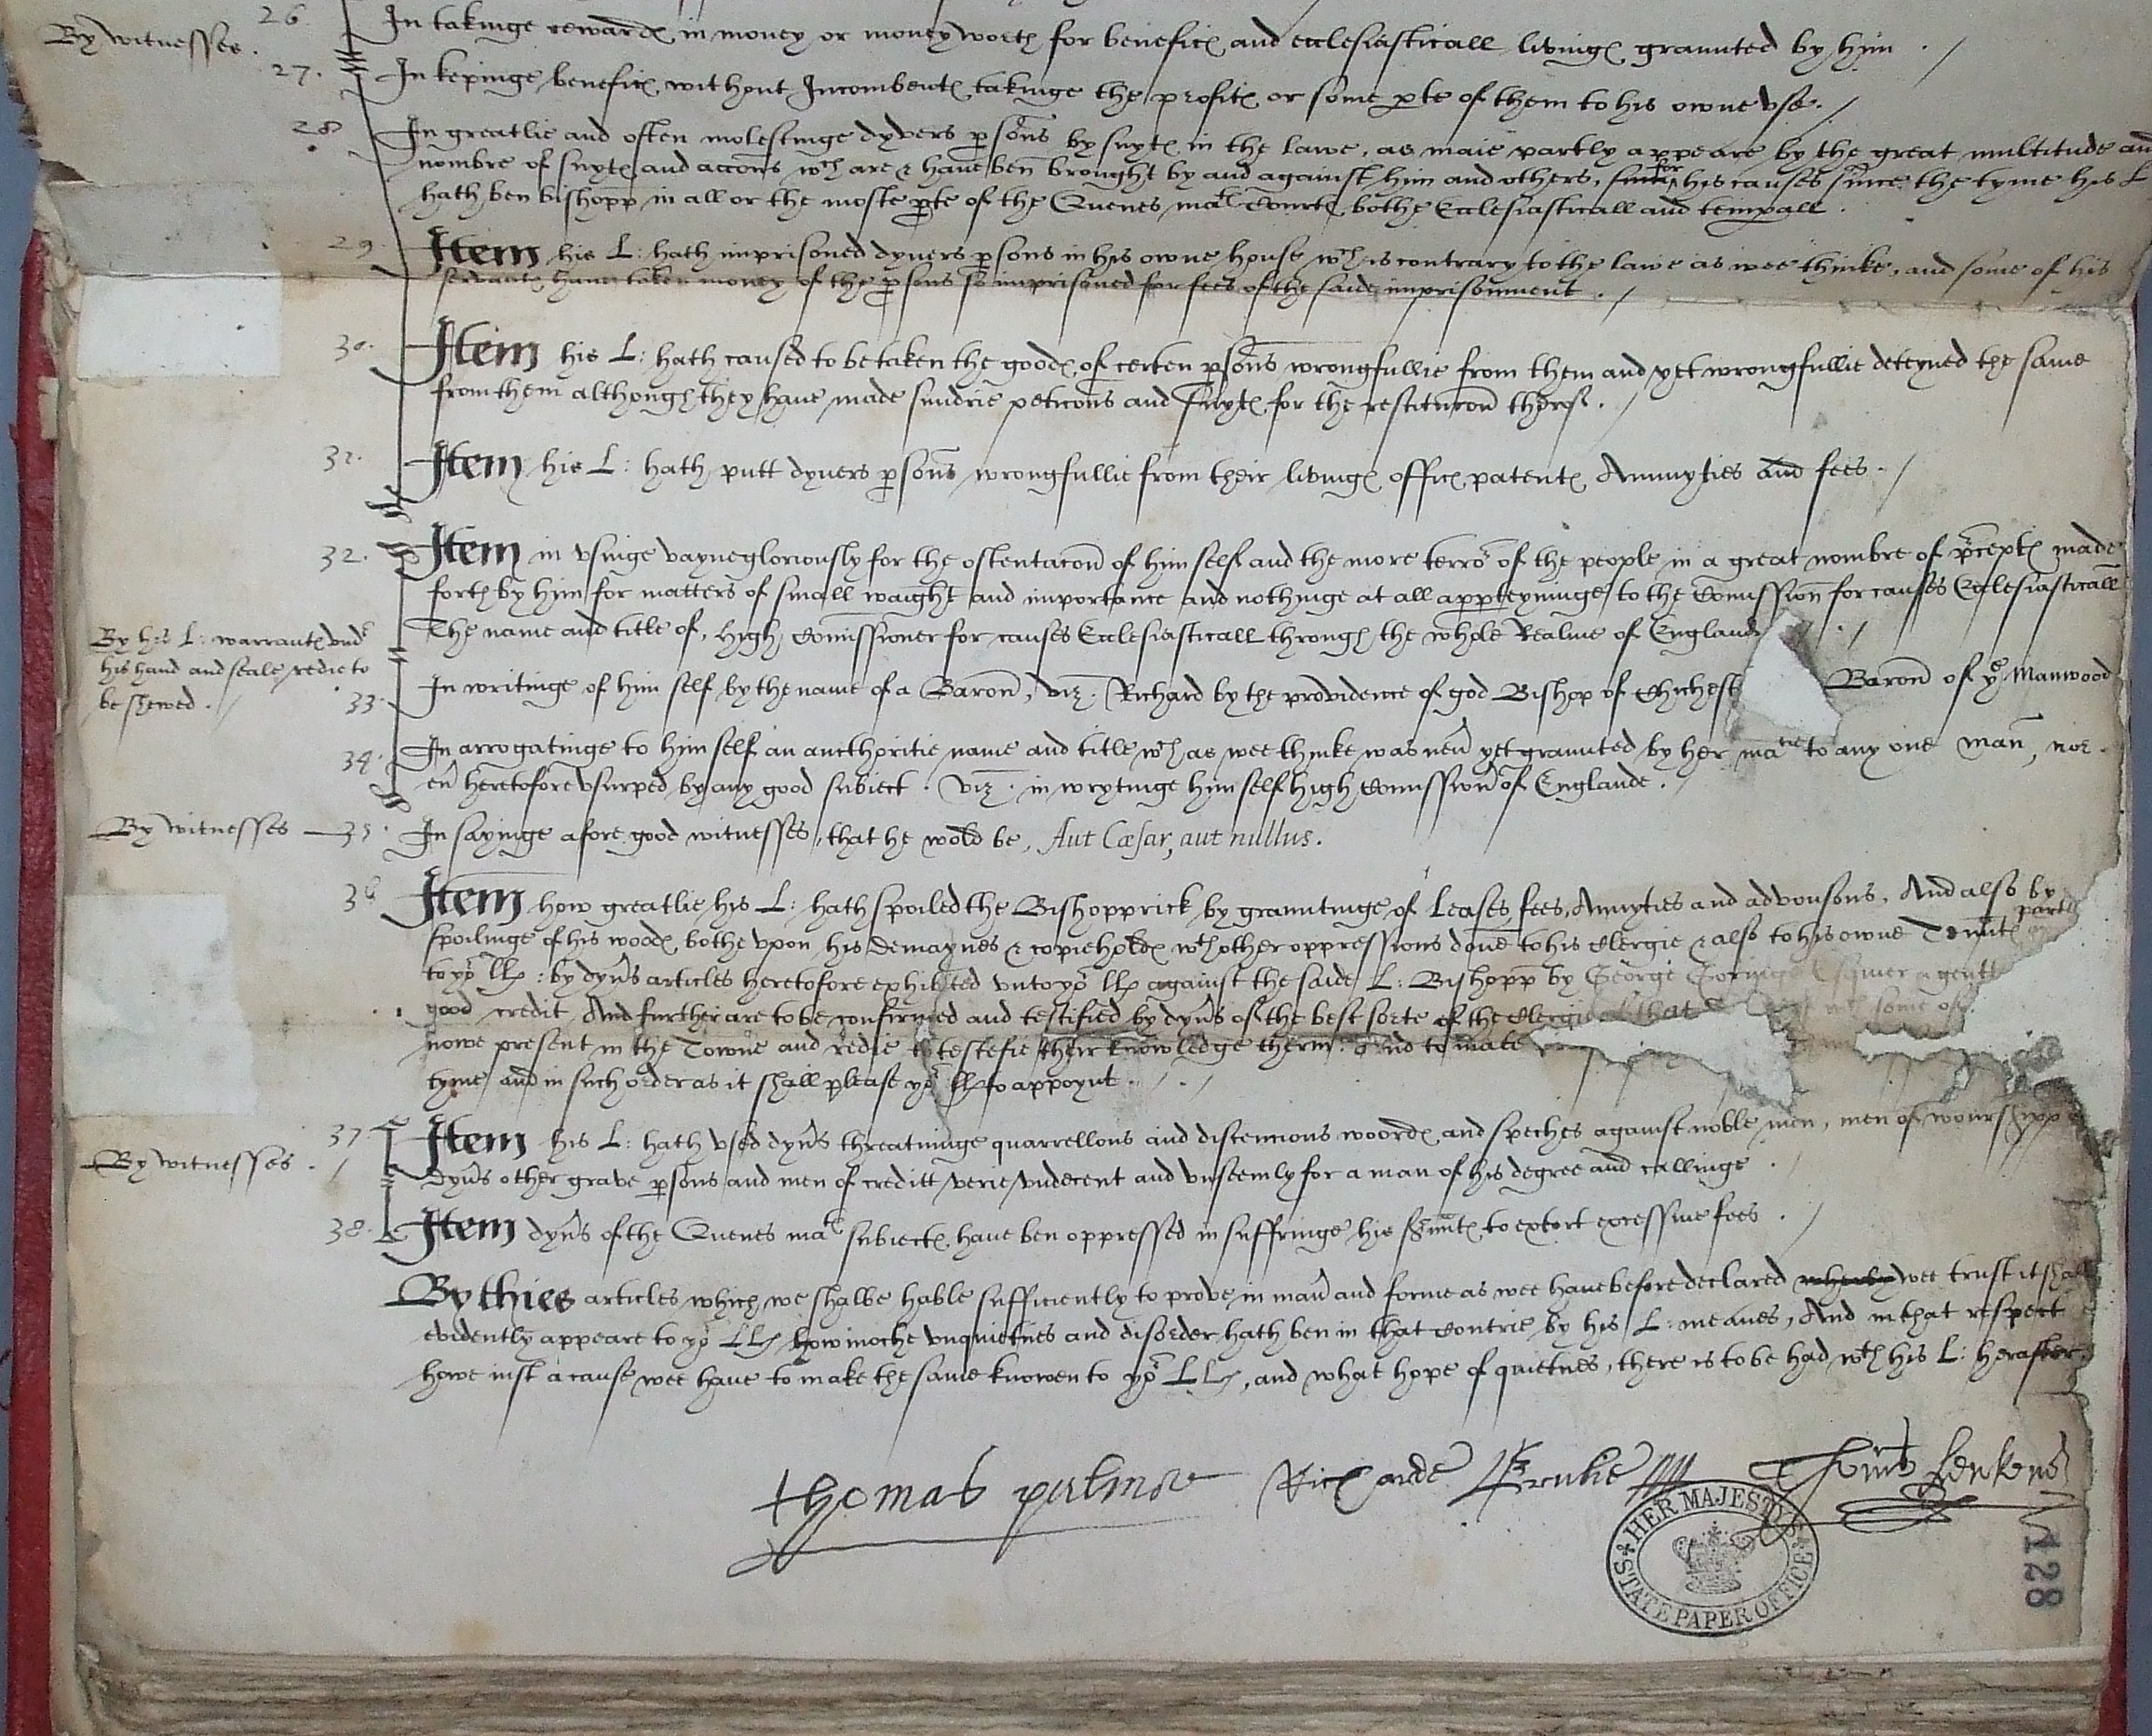 By witnesses .
26. In takinge reward℮ in money or money worth for benefic℮ and ecclesiasticall living℮ graunted by hym . /
27. In kepinge benefic℮ without Incombent℮ takinge the profit℮ or some p̱te of them to his owne vse . /
28 In greatlie and often molestinge dyvers p̱sons by suyt℮ in the lawe, as maie partly appeare by the great multitude and
nombre of suyt℮ and accons wch are & haue ben brought by and against him and others, for his causes since the tyme his L
hath ben bishopp in all or the moste p̱te of the Quenes matꝭ Court℮ bothe Ecclesiasticall and temp̱all .
29. Item his L: hath imprisoned dyuers p̱sons in his owne house wch is contrary to the lawe as wee thinke, and some of his
servant℮ haue taken money of the p̱sons so imprisoned for fees of the saide imprisonment . /
30. Item his L: hath caused to be taken the good℮ of certen p̱sons wrongfullie from them and yet wrongfullie deteyned the same
from them although they haue made sundrie peticons and suyt℮ for the restitucon therof . /
31. Item his L: hath putt dyuers p̱sons wrongfullie from their living℮ offic℮ patent℮ Annuyties and fees . /
32. Item in vsinge vaynegloriously for the ostentacon of him self and the more terror of the people in a great nombre of p̄cept℮ made
forth by him for matters of small waight and importance and nothinge at all apperteyninge to the Comission for causes Ecclesiasticall
The name and title of, high Comissioner for causes Ecclesiasticall through the whole Realme of England . /
By his L: warrant℮ vnder
his hand and seale redie to
be shewed . /
33. In writinge of him self by the name of a Baron, viz. Richard by the providence of god Bishop of Chichest Baron of ye Manwood
34. In arrogatinge to him self an aucthoritie name and title wch as wee thinke was neu͛ yet graunted by her matie to any one man, nor
eu͛ heretofore vsurped by any good subiect . viz . in wrytinge him self high Comissionr of Englande .
By witnesses 35. In sayinge afore good witnesses, that he wold be, Aut Cæsar, aut nullus.
36 Item how greatlie his L: hath spoiled the Bishopprick by grauntinge of Leases, fees, Annyties and advousons, And also by
spoilinge of his wood℮ bothe vpon his demaynes & copiehold℮ wth other oppressions done to his Clergie & also to his owne Tenunt℮ partly
to yor llꝭ : by dyu͛s articles heretofore exhibited vnto yor llꝭ against the saide L: Bishopp by George Goringe Esquier a gentt
good credit And further are to be confirmed and testified by dyu͛s of the best sorte of the Clergie of that wth some of
nowe present in the Towne and redie to testefie their knowledge therin : and to make
tyme and in such order as it shall please yor llꝭ to appoynt . /
By witnesses . /
37 Item his L: hath vsed dyu͛s threatninge quarrellous and discencious woord℮ and speches against noble men, men of wourshipp
dyu͛s other grave p̱sons and men of creditt verie vndecent and vnseemly for a man of his degree and callinge .
38. Item dyu͛s of the Quenes matꝭ subiect℮ haue ben oppressed in suffringe his s͛unt℮ to extort excessiue fees . /
By thies articles which we shalbe hable sufficiently to prove in man͛ and forme as wee haue before declared wherby wee trust it shall
evidently appeare to yor LLꝭ how moche vnquietnes and disorder hath ben in that Contrie by his L: meanes, And in that respect
howe iust a cause wee have to make the same knowen to yor LLꝭ, and what hope of quietnes, there is to be had wth his L: herafter .
Thomas palmer Richarde Thoms
HER MAJESTY'S STATE PAPER OFFICE
128